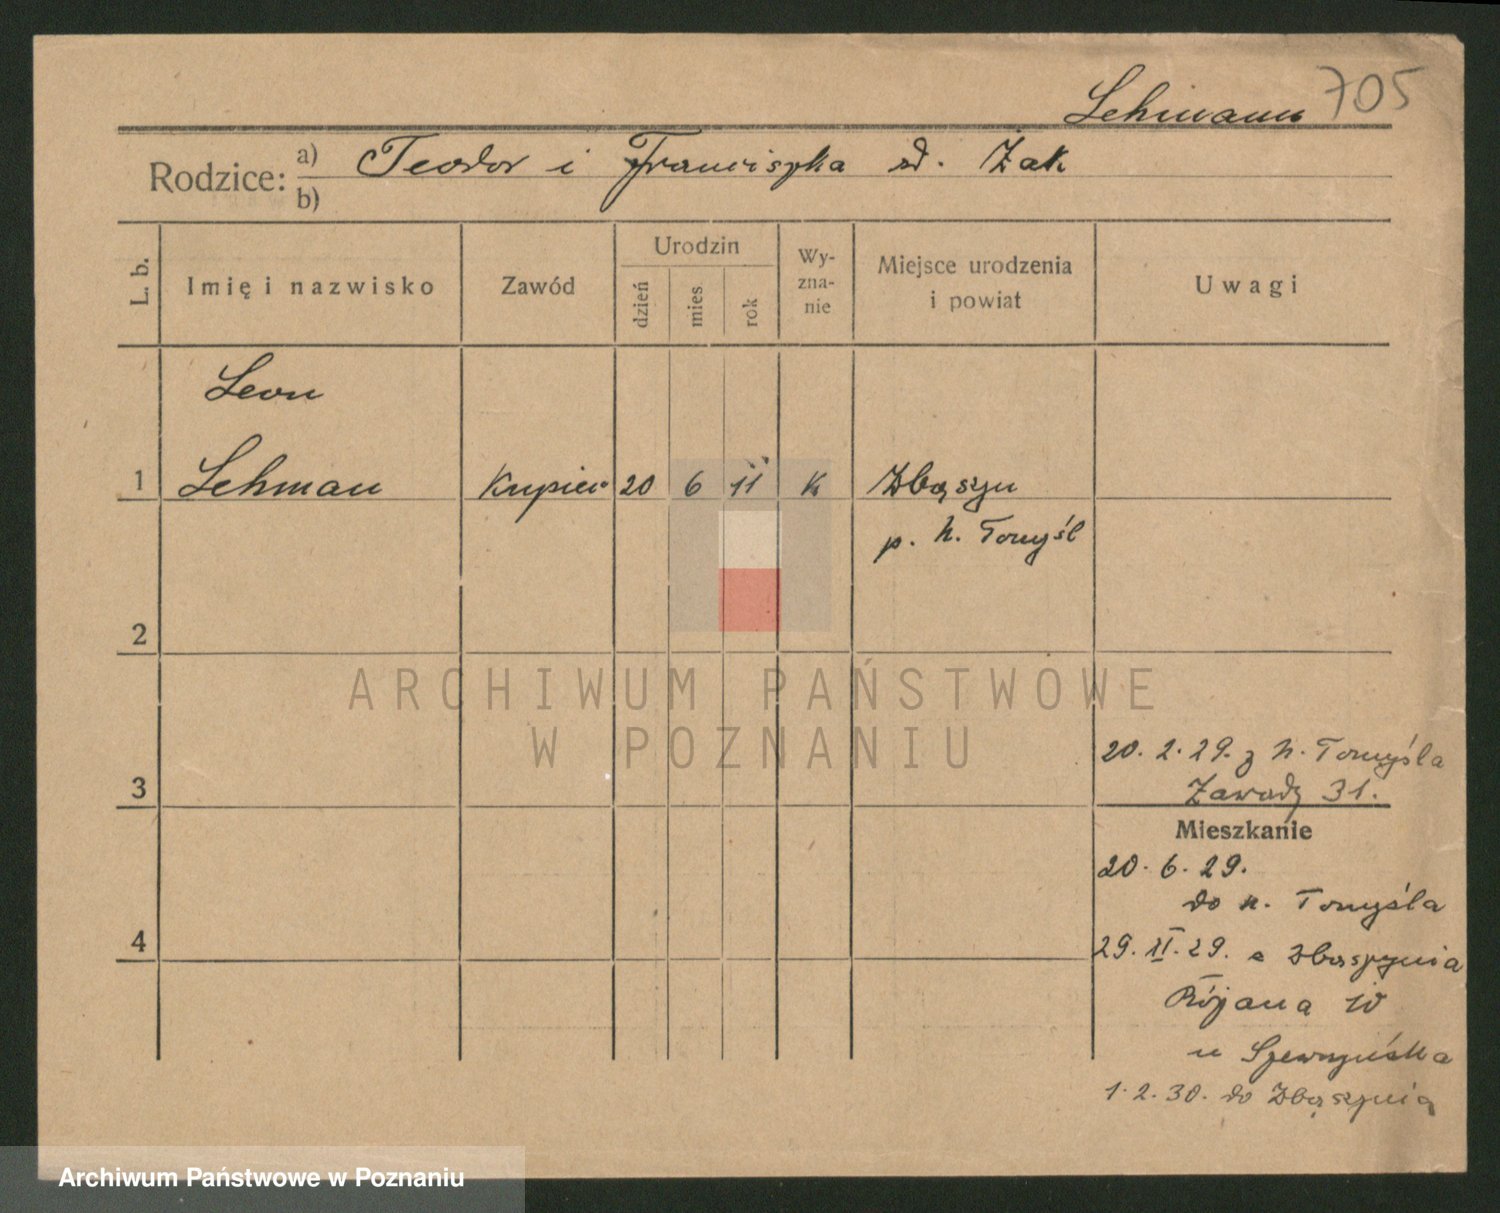 Lehmann 705
Rodzice: a) Teodor i Franciszka d. Żak
b)
L. b.
Imię i nazwisko
Zawód
Urodzin
dzień
mies
rok
Wy-
zna-
nie
Miejsce urodzenia
i powiat
Uwagi
Leon
1 Lehman Kupiec 20 6 11 K Zbąszyn
p. N. Tomyśl
2
ARCHIWUM PAŃSTWOWE
W POZNANIU
20. 2. 29. z N. Tomyśla
3 Zawady 31.
Mieszkanie
20. 6. 29.
do N. Tomyśla
4
29. II. 29. z Zbąszynia
10
u
1. 2. 30. do Zbąszynia
Archiwum Państwowe w Poznaniu